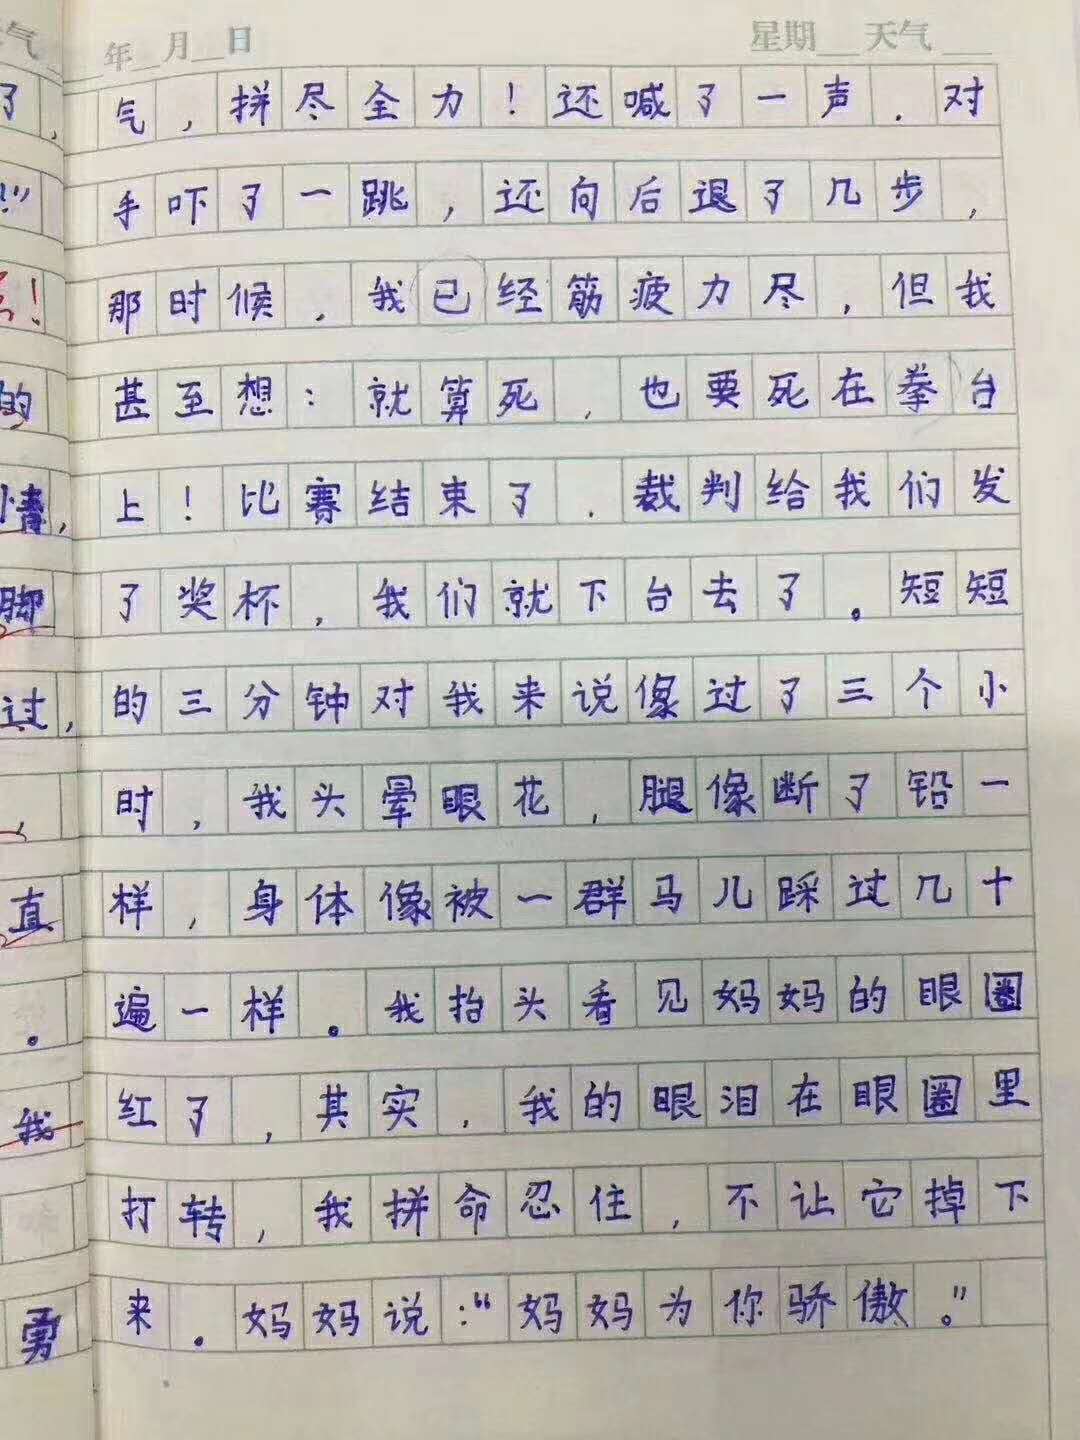 气 年 月 日 星期 天气
了， 气，拼尽全力！还喊了一声．对
！” 手吓了一跳，还向后退了几步，
！ 那时候．我已经筋疲力尽，但我
的 甚至想：就算死，也要死在拳台
情， 上！比赛结束了．裁判给我们发
脚 了奖杯，我们就下台去了。短短
过， 的三分钟对我来说像过了三个小
， 时，我头晕眼花，腿像断了铅一
直 样，身体像被一群马儿踩过几十
。 遍一样。我抬头看见妈妈的眼圈
我 红了，其实，我的眼泪在眼圈里
打转，我拼命忍住，不让它掉下
勇 来。妈妈说：“妈妈为你骄傲。”